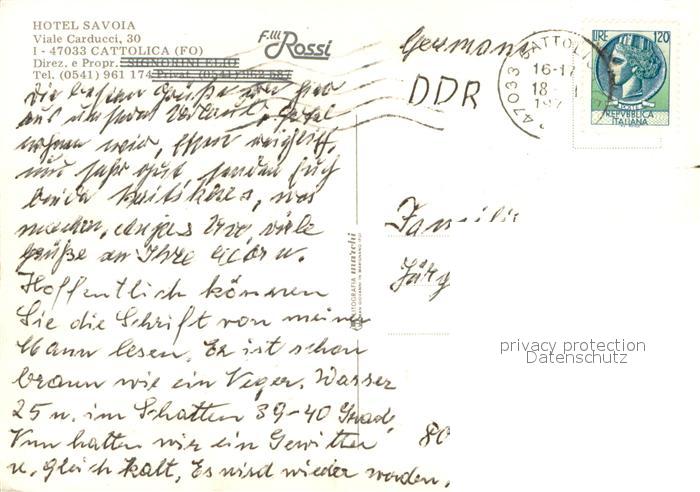 HOTEL SAVOIA
Viale Carducci, 30
I - 47033 CATTOLICA (FO)
Direz. e Propr. SIGNORINI ELIO
Tel. (0541) 961 174 Privat. (0541) 962 587
F.lli Rossi
Germany
DDR
47033 CATTOLI
16-17
18
197
LIRE 120
POSTE
REPVBBLICA
ITALIANA
Die besten Grüße von
aus unserem Urlaub.
wohnen wir, Essen reichlich,
und sehr gut, senden Euch
beide was
machen, viele
Grüße an Ihre u.
Hoffentlich können
Sie die Schrift von meinem
Mann lesen. Er ist schon
braun wie ein Neger. Wasser
25 u. im Schatten 39-40 Grad.
Nun hatten wir ein Gewitter
u. gleich kalt. Es wird wieder werden.
Familie
Jürg
80
LITOGRAFIA marchi
privacy protection
Datenschutz